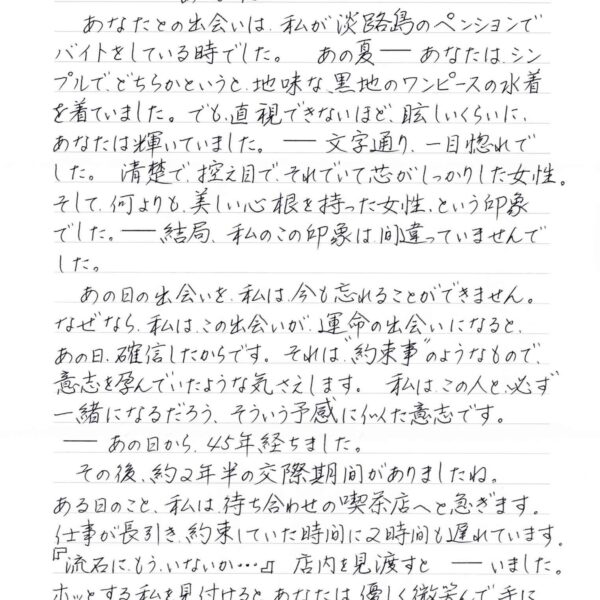 あなたとの出会いは、私が淡路島のペンションで
バイトをしている時でした。 あの夏── あなたは、シン
プルで、どちらかというと、地味な、黒地のワンピースの水着
を着ていました。でも、直視できないほど、眩しいくらいに、
あなたは輝いていました。 ── 文字通り、一目惚れで
した。 清楚で、控え目で、それでいて芯がしっかりした女性。
そして、何よりも、美しい心根を持った女性、という印象
でした。── 結局、私のこの印象は間違っていませんで
した。
あの日の出会いを、私は、今も忘れることができません。
なぜなら、私は、この出会いが、運命の出会いになると、
あの日、確信したからです。それは“約束事”のようなもので、
意志を孕んでいたような気さえします。 私は、この人と、必ず
一緒になるだろう、そういう予感に似た意志です。
── あの日から、45年経ちました。
その後、約2年半の交際期間がありましたね。
ある日のこと、私は、待ち合わせの喫茶店へと急ぎます。
仕事が長引き、約束していた時間に2時間も遅れています。
『流石に、もう、いないか…』 店内を見渡すと ── いました。
ホッとする私を見付けると、あなたは、優しく微笑んで、手に